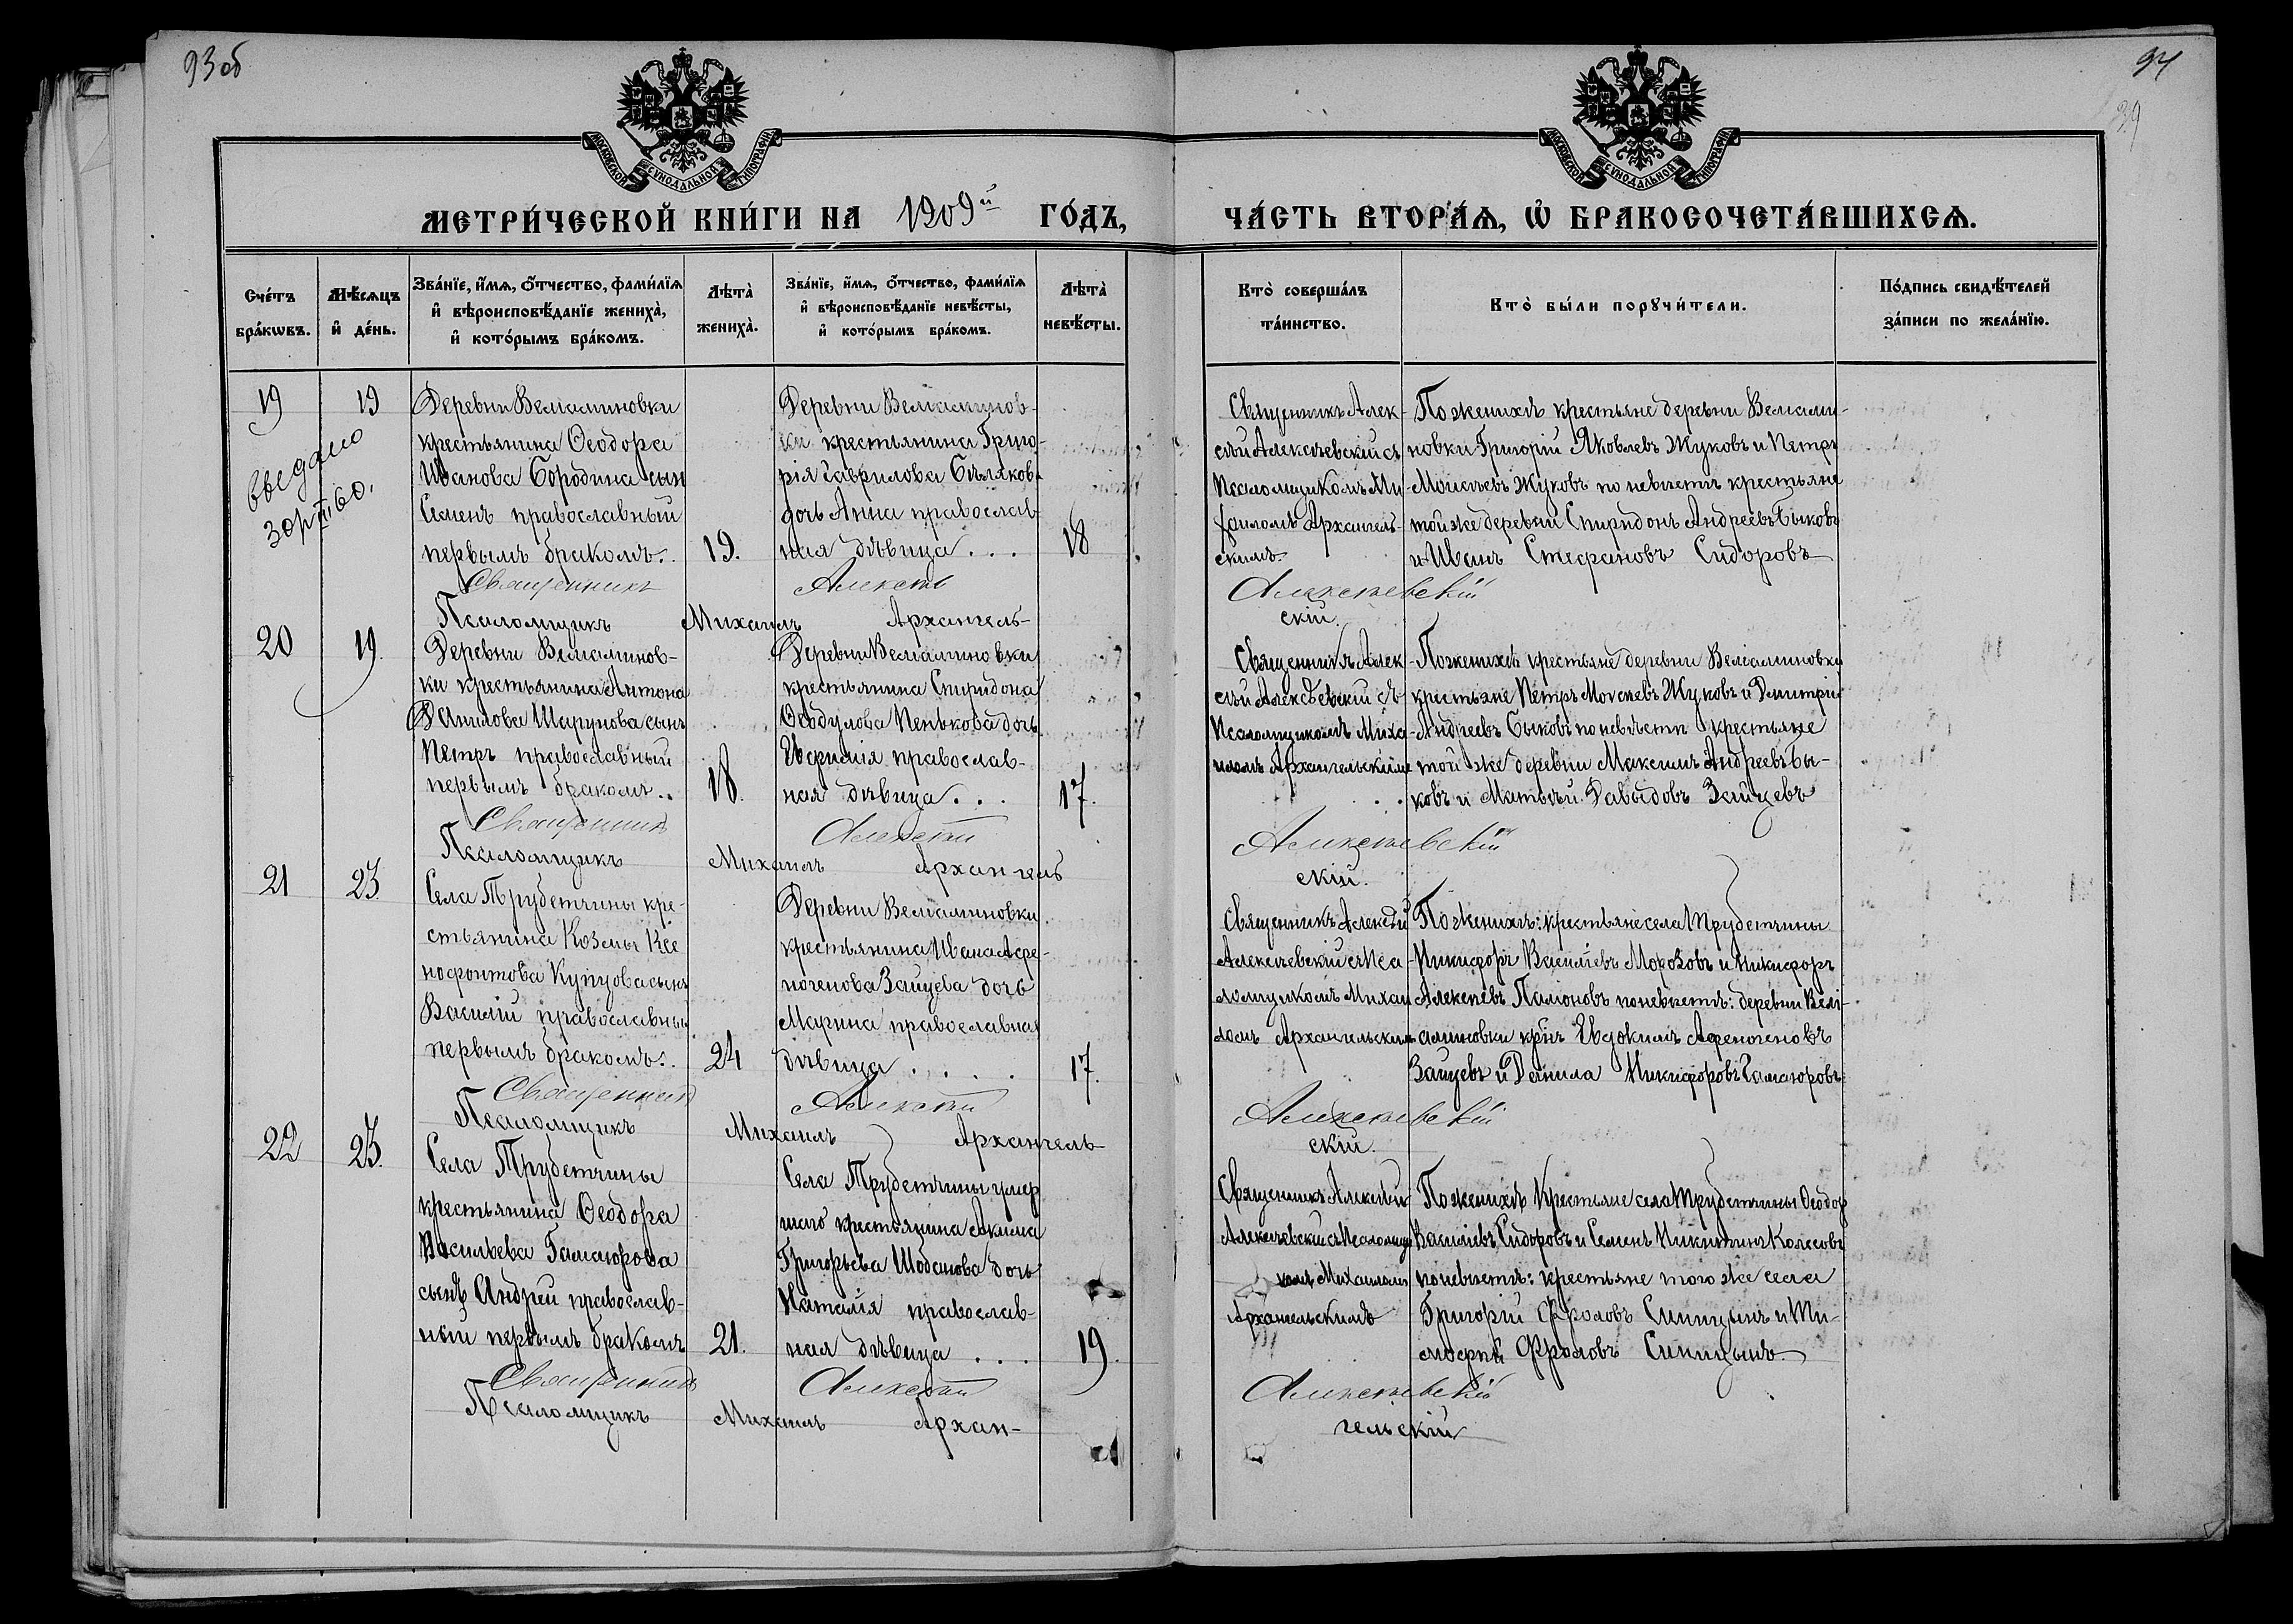 93 об
94
39
МОСКОВСКОЙ СѴНОДАЛЬНОЙ ТИПОГРАФІИ
МОСКОВСКОЙ СѴНОДАЛЬНОЙ ТИПОГРАФІИ
МЕТРИ́ЧЕСКОЙ КНИ́ГИ НА 1909й ГО́ДЪ,
ЧА́СТЬ ВТОРА́Ѧ, Ѽ БРАКОСОЧЕТА́ВШИХСѦ.
Сче́тъ
бра́кѡвъ.
Мѣ́сѧцъ
и҆ де́нь.
Зва́нїе, и҆́мѧ, ѻ҆́тчество, фами́лїѧ
и҆ вѣроисповѣ́данїе жениха̀,
и҆ кото́рымъ бра́комъ.
Лѣта̀
жениха̀.
Зва́нїе, и҆́мѧ, ѻ҆́тчество, фами́лїѧ
и҆ вѣроисповѣ́данїе невѣ́сты,
и҆ кото́рымъ бра́комъ.
Лѣта̀
невѣ́сты.
Кто̀ соверша́лъ
та́инство.
Кто̀ бы́ли порꙋчи́тели.
По́дпись свидѣ́телей
за́писи по жела́нїю.
19
19
Деревни Веліаминовки
крестьянина Ѳеодора
Иванова Бородина сын
Семенъ православный
первымъ бракомъ.
19.
Деревни Веліаминов-
ки крестьянина Григо-
рія Гаврилова Бѣляков
дочь Анна православ-
ная дѣвица . . .
18
Священникъ Алек-
сѣй Алексѣевскій съ
Псаломщикомъ Ми-
хаиломъ Архангель-
скимъ
По женихѣ крестьяне деревни Веліами-
новки Григорій Яковлевъ Жуковъ и Петръ
Моисѣевъ Жуковъ по невѣстѣ крестьяне
той же деревни Спиридонъ Андреевъ Быковъ
и Иванъ Стефановъ Сидоровъ
Священникъ Алексѣй Алексѣевскій
Псаломщикъ Михаилъ Архангель-
скій.
20
19.
Деревни Веліаминов-
ки крестьянина Антона
Данилова Шарунова сынъ
Петръ православный
первымъ бракомъ . .
18.
Деревни Веліаминовки
крестьянина Спиридона
Ѳеодулова Пенькова дочь
Евфимія православ-
ная дѣвица . . .
17.
Священникъ Алек
сѣй Алексѣевскій съ
Псаломщикомъ Миха-
иломъ Архангельскимъ
По женихѣ крестьяне деревни Веліаминовки
крестьяне Петръ Моисеевъ Жуковъ и Дмитрій
Андреевъ Быковъ по невѣстѣ крестьяне
той же деревни Максимъ Андреевъ Бы-
ковъ и Матвѣй Давыдовъ Зайцевъ
Священникъ Алексѣй Алексѣевскій
Псаломщикъ Михаилъ Архангель
скій.
21
23.
Села Трубетчины кре-
стьянина Козьмы Ксе
нофонтова Купцова сынъ
Василій православный
первымъ бракомъ.
24
Деревни Веліаминовки
крестьянина Ивана Афе-
ногенова Зайцева дочь
Марина православная
дѣвица . . . .
17.
Священникъ Алексѣй
Алексѣевскій съ Пса-
ломщикомъ Михаи
ломъ Архангельскимъ
По женихѣ: крестьяне села Трубетчины
Никифоръ Василіевъ Морозовъ и Никифоръ
Алексѣевъ Памоновъ по невѣстѣ: деревни Велі-
аминовки крне Евдокимъ Афеногеновъ
Зайцевъ и Данила Никифоровъ Гамаюровъ
Священникъ Алексѣй Алексѣевскій
Псаломщикъ Михаилъ Архангель-
скій.
22
23.
Села Трубетчины
крестьянина Ѳеодора
Васильева Гамаюрова
сынъ Андрей православ-
ный первымъ бракомъ
21.
Села Трубетчины умер
шаго крестьянина Іакима
Григорьева Шобанова дочь
Наталія православ-
ная дѣвица . . .
19.
Священникъ Алексѣй
Алексѣевскій съ Псаломщи
комъ Михаиломъ
Архангельскимъ
По женихѣ Крестьяне села Трубетчины Ѳеодор
Василіевъ Сидоровъ и Семенъ Никитинъ Колесовъ
по невѣстѣ: крестьяне того же села
Григорій Фроловъ Синицынъ и Ти-
мофей Фроловъ Синицынъ.
Священникъ Алексѣй Алексѣевскій
Псаломщикъ Михаилъ Архан-
гельскій